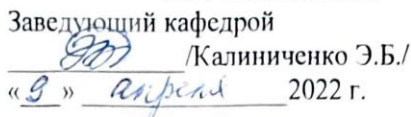 Заведующий кафедрой
/Калиниченко Э.Б./
«9» апреля 2022 г.